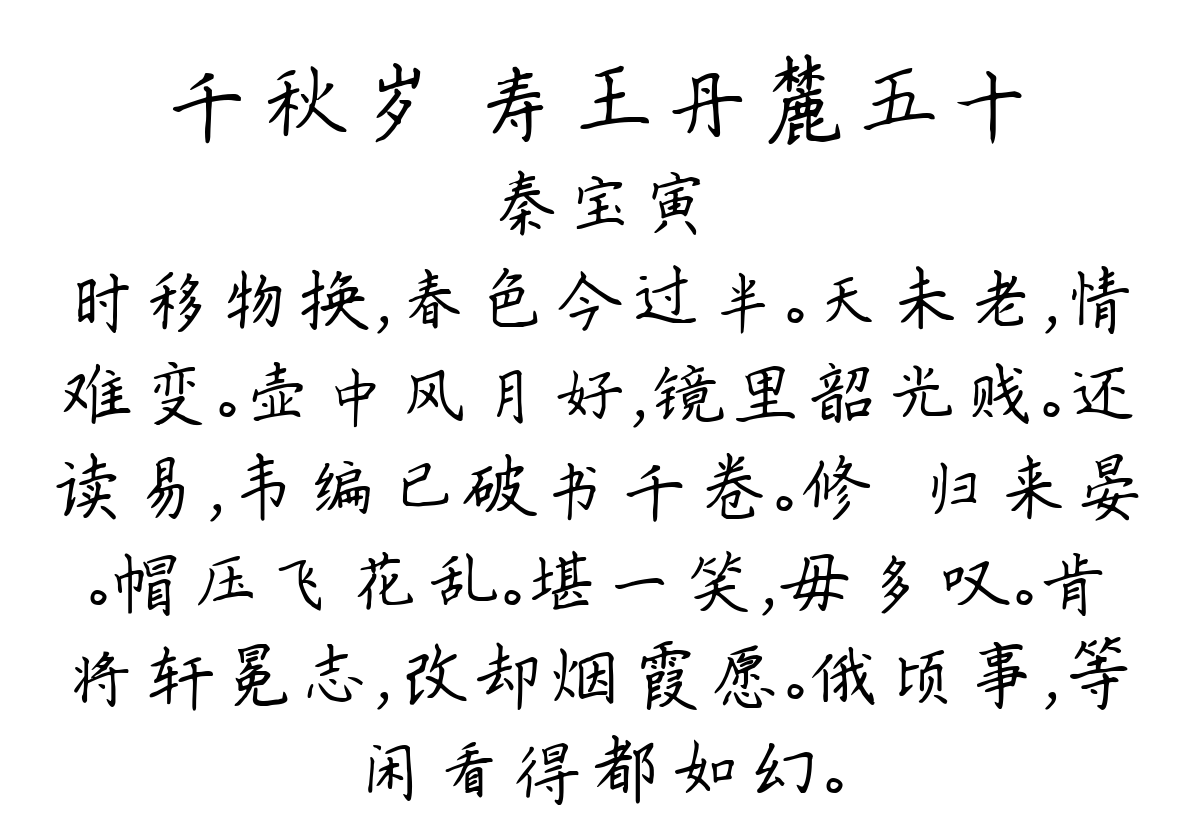 千秋岁 寿王丹麓五十
秦宝寅
时移物换,春色今过半。天未老,情
难变。壶中风月好,镜里韶光贱。还
读易,韦编已破书千卷。修 归来晏
。帽压飞花乱。堪一笑,毋多叹。肯
将轩冕志,改却烟霞愿。俄顷事,等
闲看得都如幻。